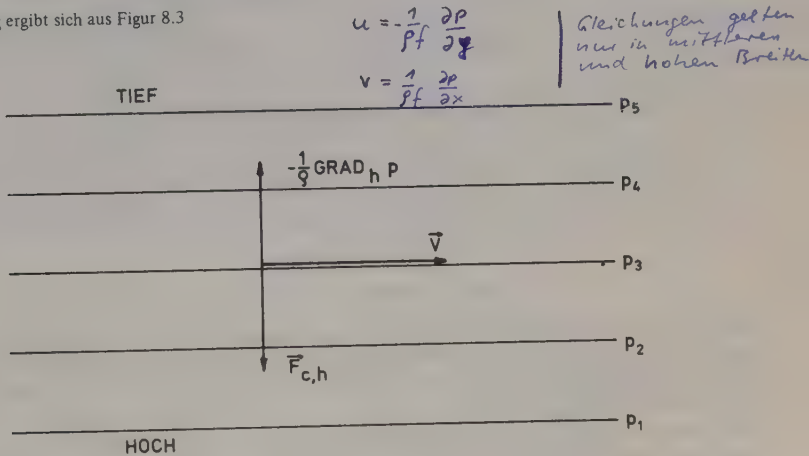 ergibt sich aus Figur 8.3
u = -1/ρf ∂p/∂y
v = 1/ρf ∂p/∂x
Gleichungen gelten
nur in mittleren
und hohen Breiten
TIEF
p5
-1/ρ GRADh p
p4
V⃗
p3
F⃗c,h
p2
p1
HOCH